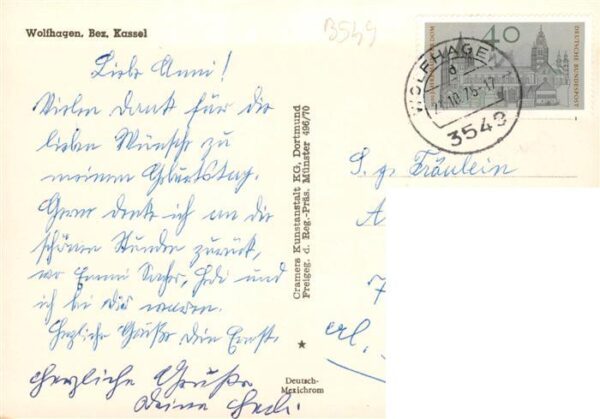 Wolfhagen, Bez. Kassel
B549
Liebe Anni!
Vielen Dank für die
lieben Wünsche zu
meinem Geburtstag.
Gerne denke ich an die
schönen Stunden zurück,
wo Emmi, Hedi und
ich bei Dir waren.
Herzliche Grüße Dein Ernst.
Herzliche Grüße
Deine Hedi.
Cramers Kunstanstalt KG, Dortmund
Freigeg. d. Reg.-Präs. Münster 496/70
★
Deutsch-
Mexichrom
40
DEUTSCHE BUNDESPOST
WOLFHAGEN
d
3549
S. g. Fräulein
A